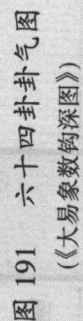 图 191 六十四卦卦气图
(《大易象数钩深图》)